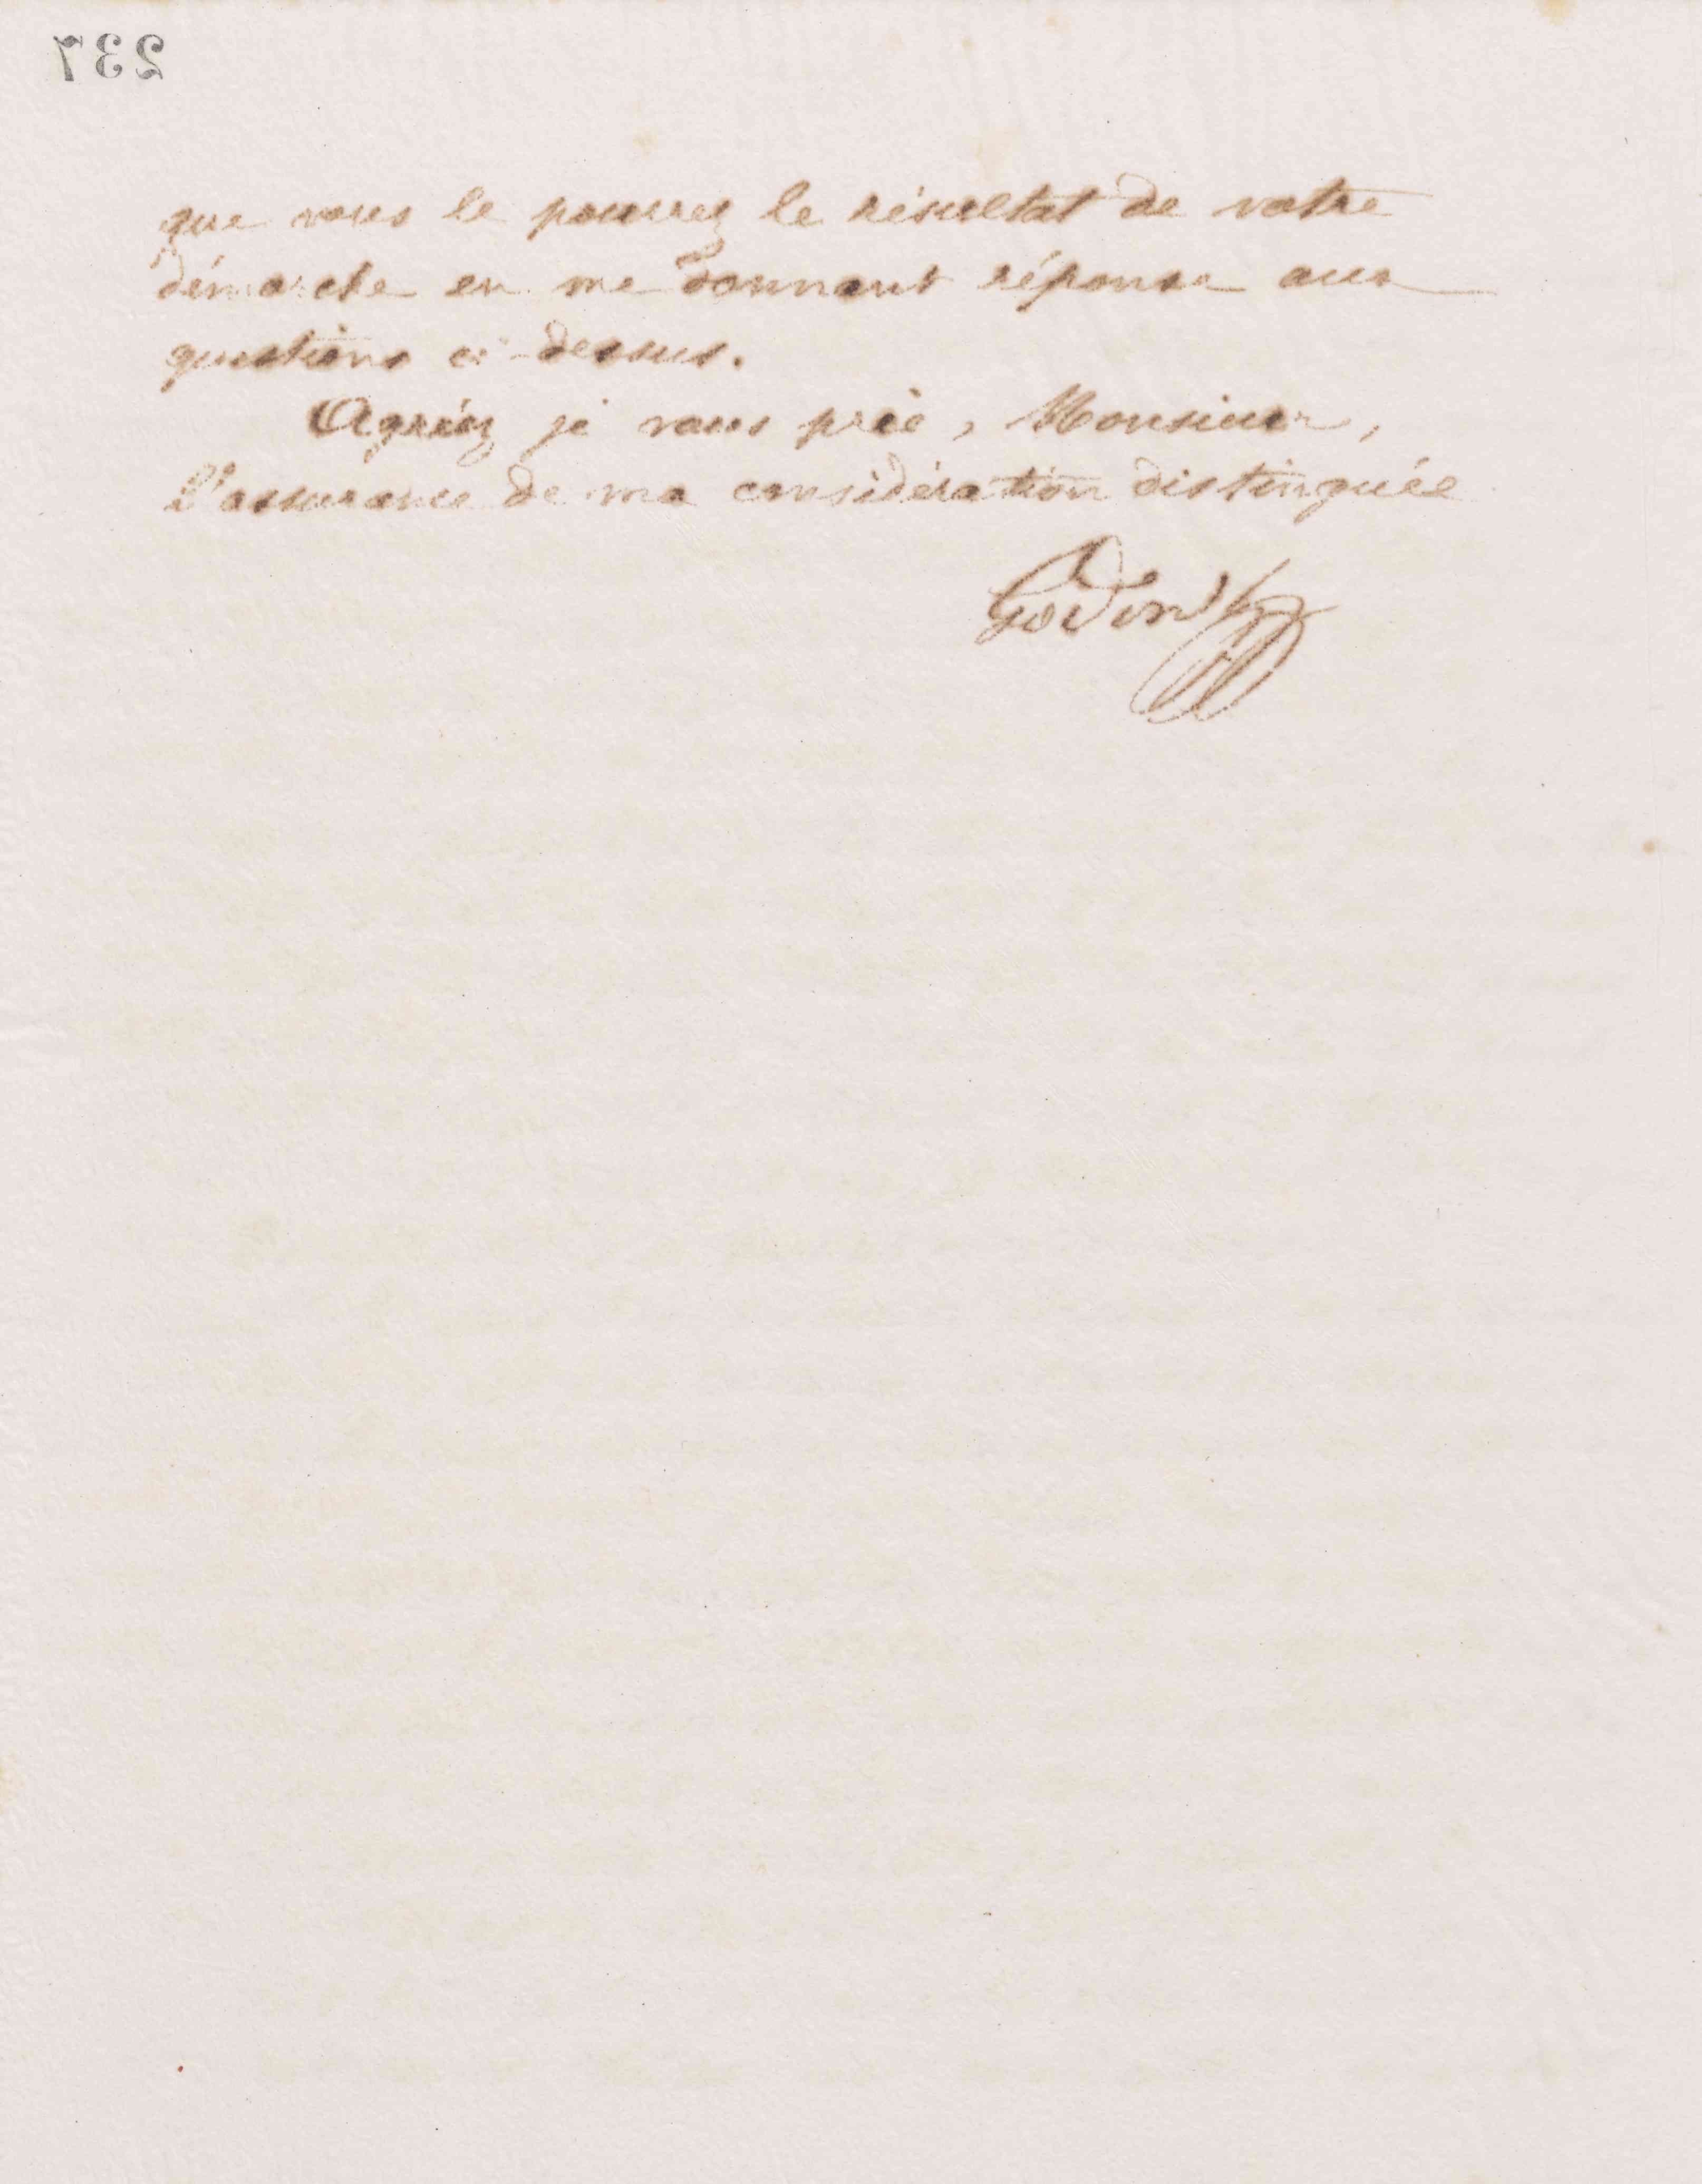 237
que vous le pourrez le résultat de votre
démarche en me donnant réponse aux
questions ci-dessus.
Agréez je vous prie, Monsieur,
l'assurance de ma considération distinguée
Godin